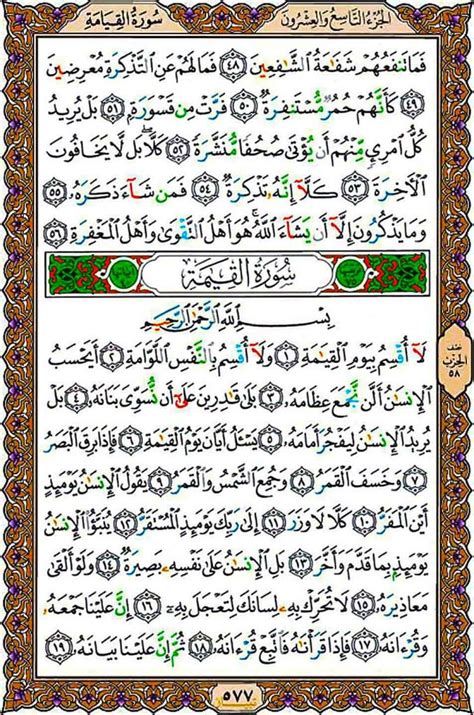 الجُزْءُ التَّاسِعُ وَالعِشْرُونَ
سُورَةُ القِيَامَةِ
فَمَا تَنفَعُهُمْ شَفَٰعَةُ ٱلشَّٰفِعِينَ ٤٨ فَمَا لَهُمْ عَنِ ٱلتَّذْكِرَةِ مُعْرِضِينَ
٤٩ كَأَنَّهُمْ حُمُرٌ مُّسْتَنفِرَةٌ ٥٠ فَرَّتْ مِن قَسْوَرَةٍۭ ٥١ بَلْ يُرِيدُ
كُلُّ ٱمْرِئٍ مِّنْهُمْ أَن يُؤْتَىٰ صُحُفًا مُّنَشَّرَةً ٥٢ كَلَّا ۖ بَل لَّا يَخَافُونَ
ٱلْءَاخِرَةَ ٥٣ كَلَّآ إِنَّهُۥ تَذْكِرَةٌ ٥٤ فَمَن شَآءَ ذَكَرَهُۥ ٥٥
وَمَا يَذْكُرُونَ إِلَّآ أَن يَشَآءَ ٱللَّهُ ۚ هُوَ أَهْلُ ٱلتَّقْوَىٰ وَأَهْلُ ٱلْمَغْفِرَةِ ٥٦
سُورَةُ القِيَٰمَةِ
بِسْمِ ٱللَّهِ ٱلرَّحْمَٰنِ ٱلرَّحِيمِ
لَآ أُقْسِمُ بِيَوْمِ ٱلْقِيَٰمَةِ ١ وَلَآ أُقْسِمُ بِٱلنَّفْسِ ٱللَّوَّامَةِ ٢ أَيَحْسَبُ
ٱلْإِنسَٰنُ أَلَّن نَّجْمَعَ عِظَامَهُۥ ٣ بَلَىٰ قَٰدِرِينَ عَلَىٰٓ أَن نُّسَوِّىَ بَنَانَهُۥ ٤ بَلْ
يُرِيدُ ٱلْإِنسَٰنُ لِيَفْجُرَ أَمَامَهُۥ ٥ يَسْـَٔلُ أَيَّانَ يَوْمُ ٱلْقِيَٰمَةِ ٦ فَإِذَا بَرِقَ ٱلْبَصَرُ
٧ وَخَسَفَ ٱلْقَمَرُ ٨ وَجُمِعَ ٱلشَّمْسُ وَٱلْقَمَرُ ٩ يَقُولُ ٱلْإِنسَٰنُ يَوْمَئِذٍ
أَيْنَ ٱلْمَفَرُّ ١٠ كَلَّا لَا وَزَرَ ١١ إِلَىٰ رَبِّكَ يَوْمَئِذٍ ٱلْمُسْتَقَرُّ ١٢ يُنَبَّؤُا۟ ٱلْإِنسَٰنُ
يَوْمَئِذٍۭ بِمَا قَدَّمَ وَأَخَّرَ ١٣ بَلِ ٱلْإِنسَٰنُ عَلَىٰ نَفْسِهِۦ بَصِيرَةٌ ١٤ وَلَوْ أَلْقَىٰ
مَعَاذِيرَهُۥ ١٥ لَا تُحَرِّكْ بِهِۦ لِسَانَكَ لِتَعْجَلَ بِهِۦٓ ١٦ إِنَّ عَلَيْنَا جَمْعَهُۥ
وَقُرْءَانَهُۥ ١٧ فَإِذَا قَرَأْنَٰهُ فَٱتَّبِعْ قُرْءَانَهُۥ ١٨ ثُمَّ إِنَّ عَلَيْنَا بَيَانَهُۥ ١٩
نصف
الحزب
٥٨
٥٧٧